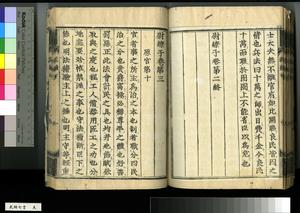 士大夫無不離官府如此關聯良民皆囚之
情也兵法曰十萬之師出日費千金今良民
十萬而聯於囹圄上不能省臣以為危也
尉繚子卷第二終
尉繚子卷第三
原官第十
官者事之所主為治之本也制者職分四民
治之分也貴爵富祿必稱尊卑之體也好善
罰惡正比法會計民之具也均井地節賦斂
取與之度也程工人備器用匠工之功也分
地塞要殄怪禁淫之事也守法稽斷臣下之
節也明法稽驗主上之操也明主守等輕重
武經七書